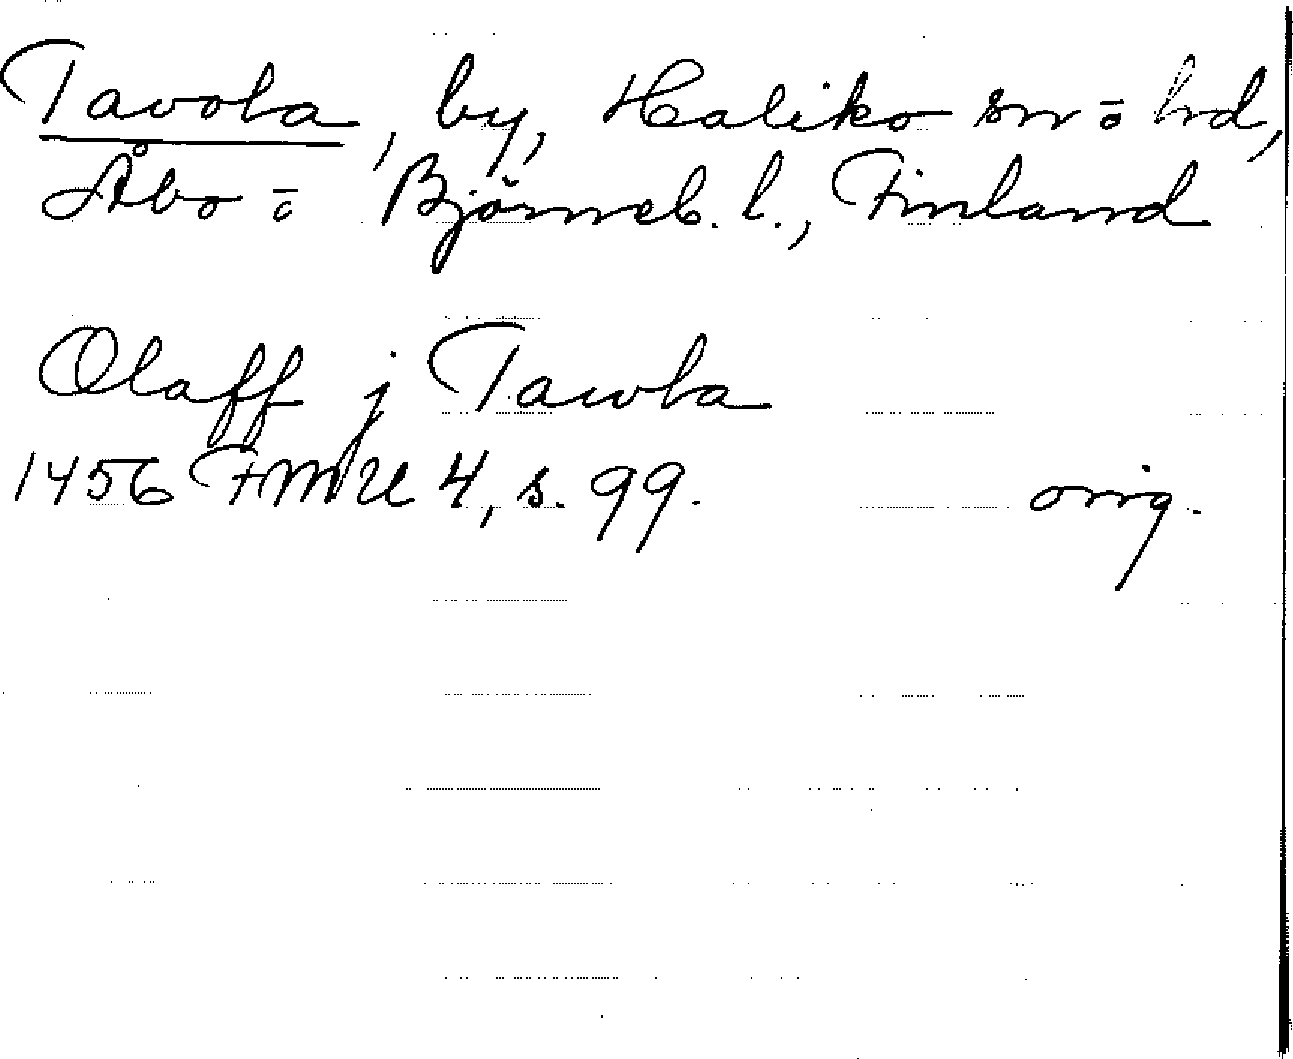 Tavola, by, Haliko sn o hd,
Åbo o Björneb. l., Finland
Olaff j Tawla
1456 FMU 4, s. 99. orig.